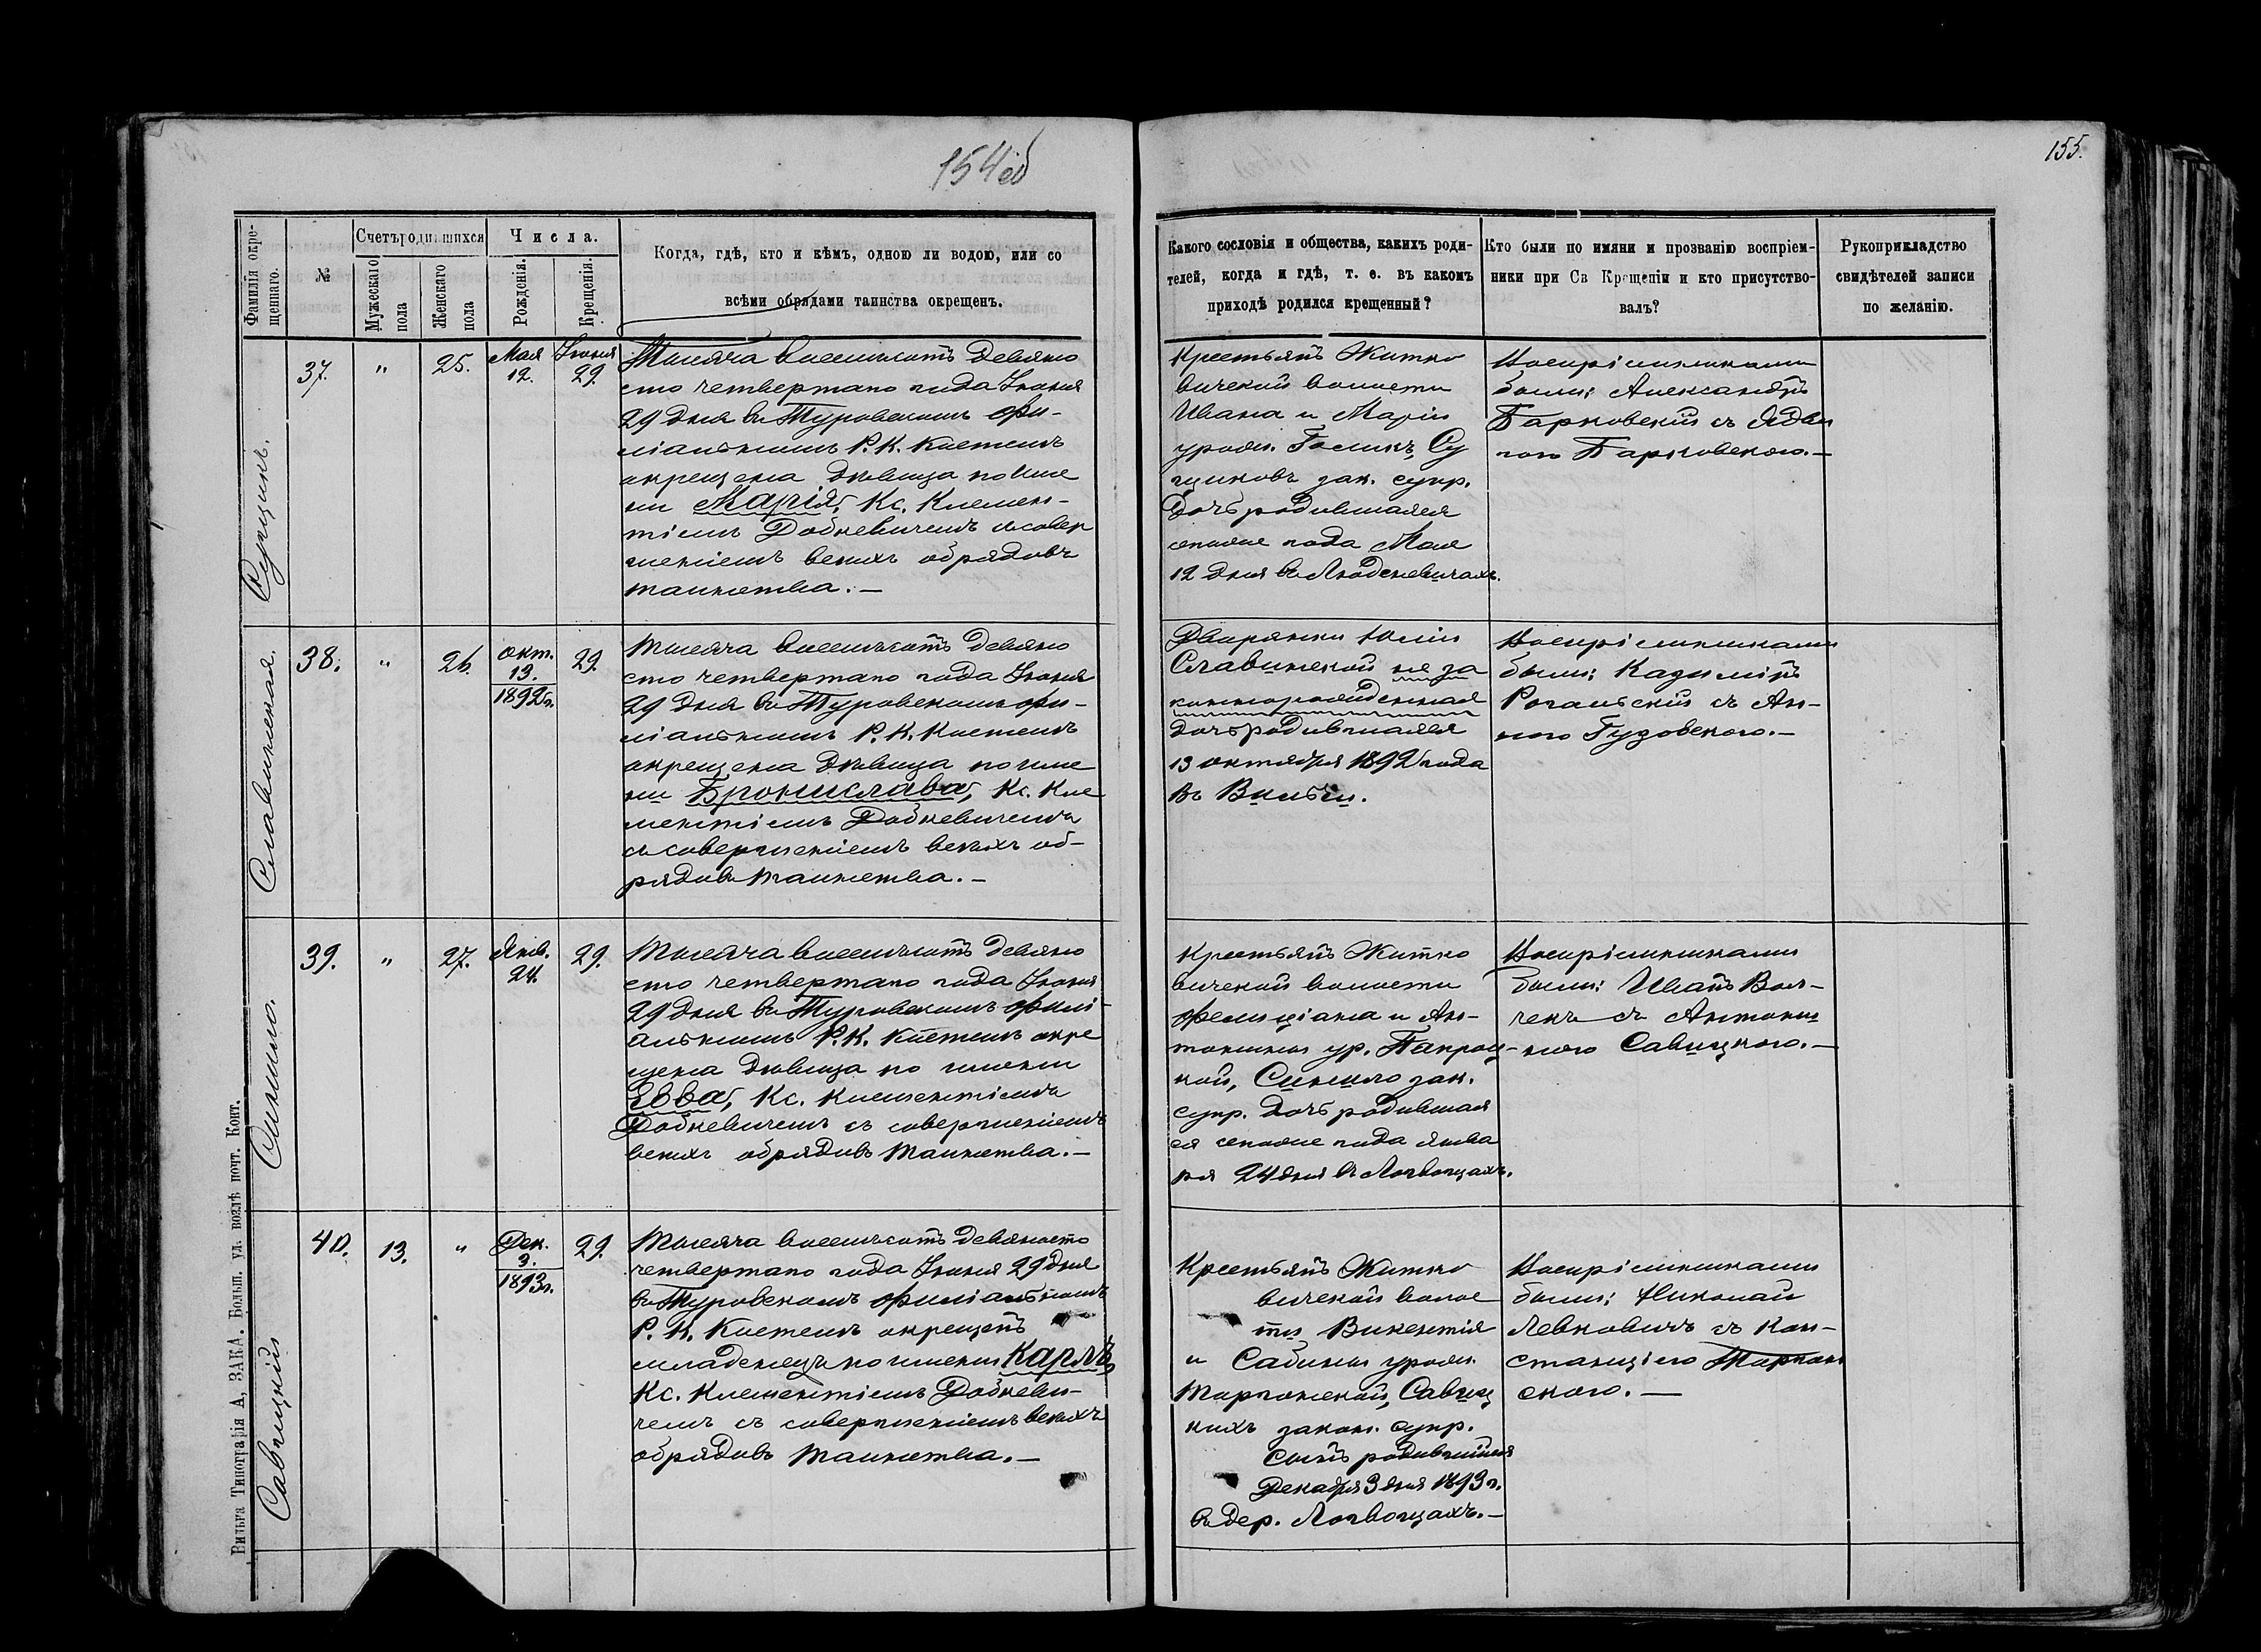 154об
155.
Фамилія окре-
щеннаго.
№
Счетъ родившихся
Мужескаго
пола
Женскаго
пола
Числа.
Рожденія.
Крещенія.
Когда, гдѣ, кто и кѣмъ, одною ли водою, или со
всѣми обрядами таинства окрещенъ.
Какого сословія и общества, какихъ роди-
телей, когда и гдѣ, т. е. въ какомъ
приходѣ родился крещенный?
Кто были по имяни и прозванію воспріем-
ники при Св Крещеніи и кто присутство-
валъ?
Рукоприкладство
свидѣтелей записи
по желанію.
Сущикъ.
37.
"
25.
Мая
12.
Іюня
29.
Тысяча восемьсотъ девяно
сто четвертаго года Іюня
29 дня въ Туровскомъ фи-
ліальномъ Р. К. Костелѣ
окрещена дѣвица по име
ни Марія, Кс. Клемен-
тіемъ Добкевичемъ съ совер
шеніемъ всѣхъ обрядовъ
таинства.—
Крестьянъ Житко
вичской волости
Ивана и Маріи
урожд. Голикъ, Су
щиковъ зак. супр.
Дочь родившаяся
сегоже года Мая
12 дня въ Людсневичахъ.
Воспріемниками
были: Александръ
Барковскій съ Ядви
гою Барковскою.—
Славинская.
38.
"
26.
окт.
13.
1892г.
29.
Тысяча восемьсотъ девяно
сто четвертаго года Іюня
29 дня въ Туровскомъ фи-
ліальномъ Р. К. Костелѣ
окрещена дѣвица по име
ни Бронислава, Кс. Кле
ментіемъ Добкевичемъ
съ совершеніемъ всѣхъ об-
рядовъ таинства.—
Дворянки Юліи
Славинской не за
коннорожденная
дочь родившаяся
13 октября 1892 года
въ Вильни.
Воспріемниками
были: Казиміръ
Рогальскій съ Ан-
ною Гузовскою.—
Синило.
39.
"
27.
Янв.
24.
29.
Тысяча восемьсотъ девяно
сто четвертаго года Іюня
29 дня въ Туровскомъ филі-
альномъ Р. К. Костелѣ окре
щена дѣвица по имени
Евва, Кс. Клементіемъ
Добкевичемъ съ совершеніемъ
всѣхъ обрядовъ таинства.—
Крестьянъ Житко
вичской волости
Фелиціана и Ан-
тонины ур. Пакроц-
кой, Синило зак.
супр. дочь родившая
ся сегоже года Янва
ря 24 дня въ Логвощахъ.
Воспріемниками
были: Иванъ Вол-
чекъ съ Антони
ною Савицкою.—
Савицкій
40.
13.
"
Дек.
3.
1893г.
29.
Тысяча восемьсотъ девяносто
четвертаго года Іюня 29 дня
въ Туровскомъ филіальномъ
Р. К. Костелѣ окрещенъ
младенецъ по имени Карлъ,
Кс. Клементіемъ Добкеви-
чемъ съ совершеніемъ всѣхъ
обрядовъ таинства.—
Крестьянъ Житко
вичской волос
ти Викентія
и Сабины урожд.
Таргонской, Савиц
кихъ закон. супр.
сынъ родившійся
Декабря 3 дня 1893 г.
въ дер. Логвощахъ.—
Воспріемниками
были: Николай
Левковичъ съ Кон-
станціею Таргон
скою.—
Вильна Типографія А, ЗАКА. Больш. ул. возлѣ почт. Конт.